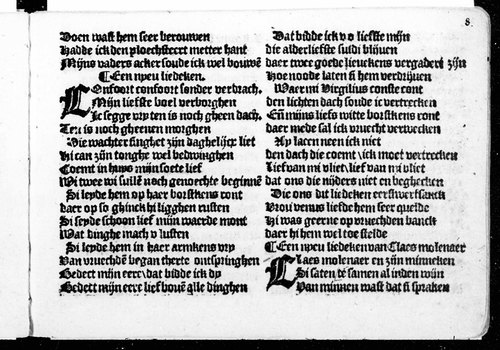 8.
Doen wast hem seer berouwen
Hadde ick den ploechsteert metter hant
Mijns vaders acker soude ick wel bouwē
¶ Een nyeu liedeken.
COnfoort confoort sonder verdrach.
Mijn liefste boel verborghen
Ic segge vry ten is noch gheen dach.
Ten is noch gheenen morghen
Die wachter singhet zijn daghelijcx liet
Hi can zijn tonghe wel bedwinghen
Coemt in huys mijn soete lief
Wi twee wi sullē noch genoechte beginnē
Si leyde hem op haer borstkens ront
daer op so ghinck hi ligghen rusten
Si seyde schoon lief mijn waerde mont
Wat dinghe mach v lusten
Si leyde hem in haer armkens vry
Van vruechdē began therte ontspringhen
Gedect mijn eere dat bidde ick dy
Gedect mijn eere lief bouē alle dinghen
Dat bidde ick v o liefste mijn
die alderliefste suldi blijuen
daer twee goede lieuekens vergadert zijn
Hoe noode laten si hem verdrijuen
Waer mi Virgilius conste cont
den lichten dach soude ic vertrecken
En mijns liefs witte borstkens ront
daer mede sal ick vruecht verwecken
Ay lacen neen ick niet
den dach die coemt ick moet vertrecken
Lief van mi vliet lief van mi vliet
dat ons die nijders niet en beghecken
Die ons dit liedeken eerstwerf sanck
Vrou venus liefde hem seer quelde
Hi was geerne op vruechden banck
daer hi hem wel toe stelde
¶ Een nyeu liedeken van Claes molenaer
CLaes molenaer en zijn minneken
Si saten te samen al in den wijn
Van minnen wast dat si spraken